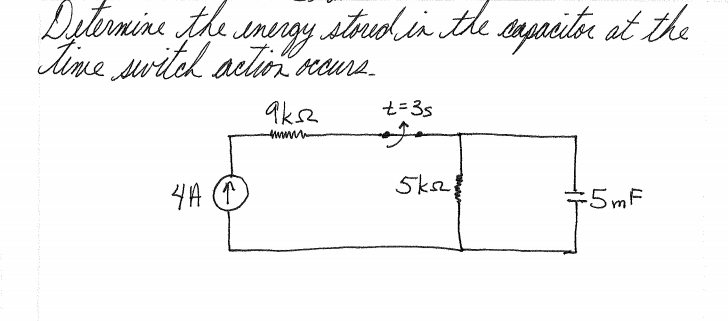 Determine the energy stored in the capacitor at the
time switch action occurs.
9kΩ
t=3s
4A
5kΩ
5mF